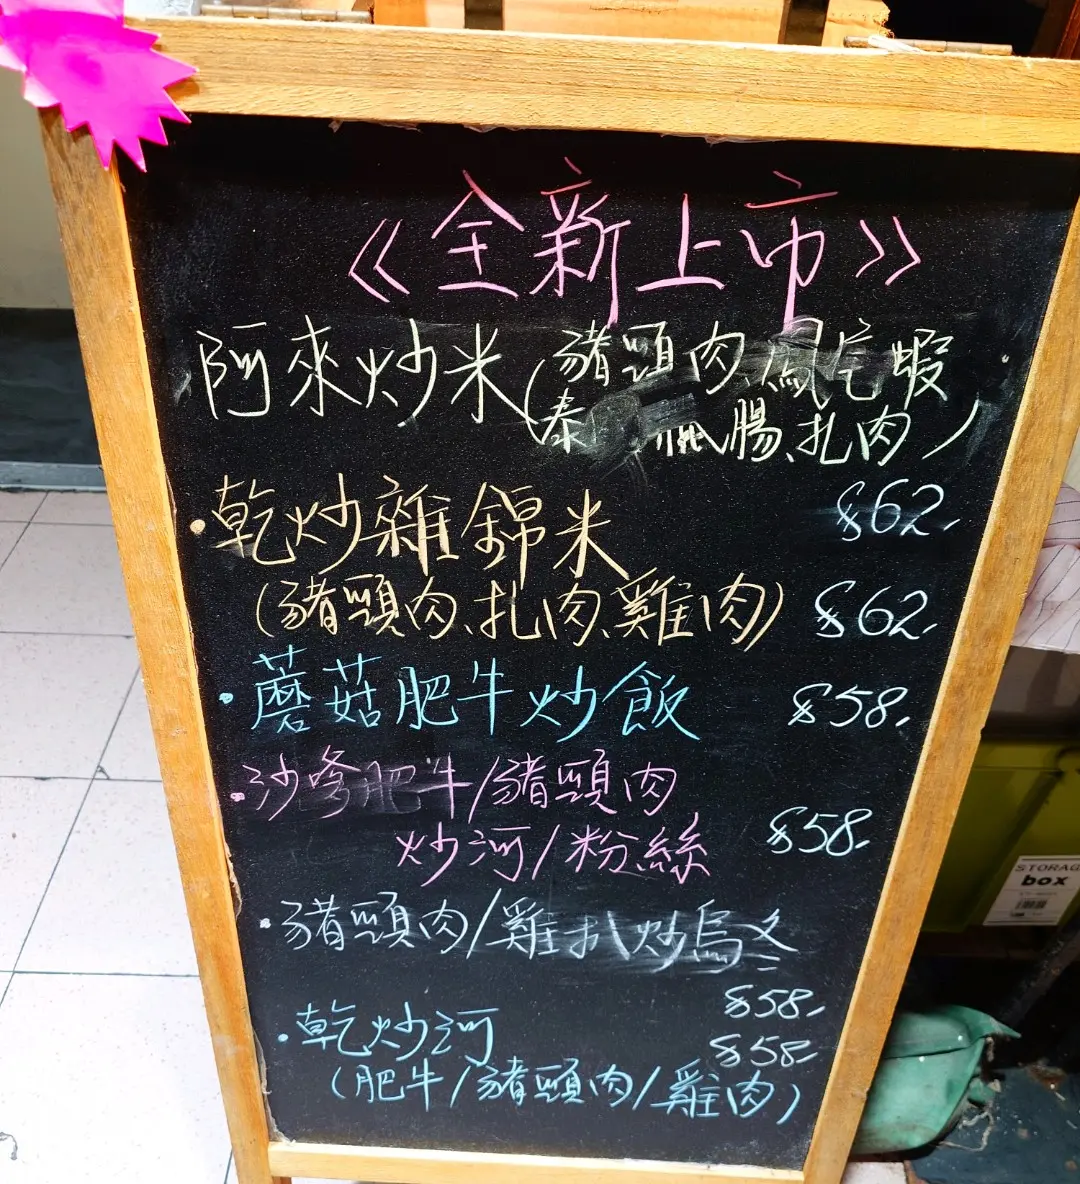 《全新上市》
阿來炒米(豬頸肉、鳳尾蝦
泰 腸、扎肉)
$62.
•乾炒雜錦米
(豬頸肉、扎肉、雞肉) $62.
•蘑菇肥牛炒飯 $58.
•沙嗲肥牛/豬頸肉
炒河/粉絲 $58.
•豬頸肉/雞扒炒烏冬
$58.
•乾炒河 $58.
(肥牛/豬頸肉/雞肉)
STORAGE
box